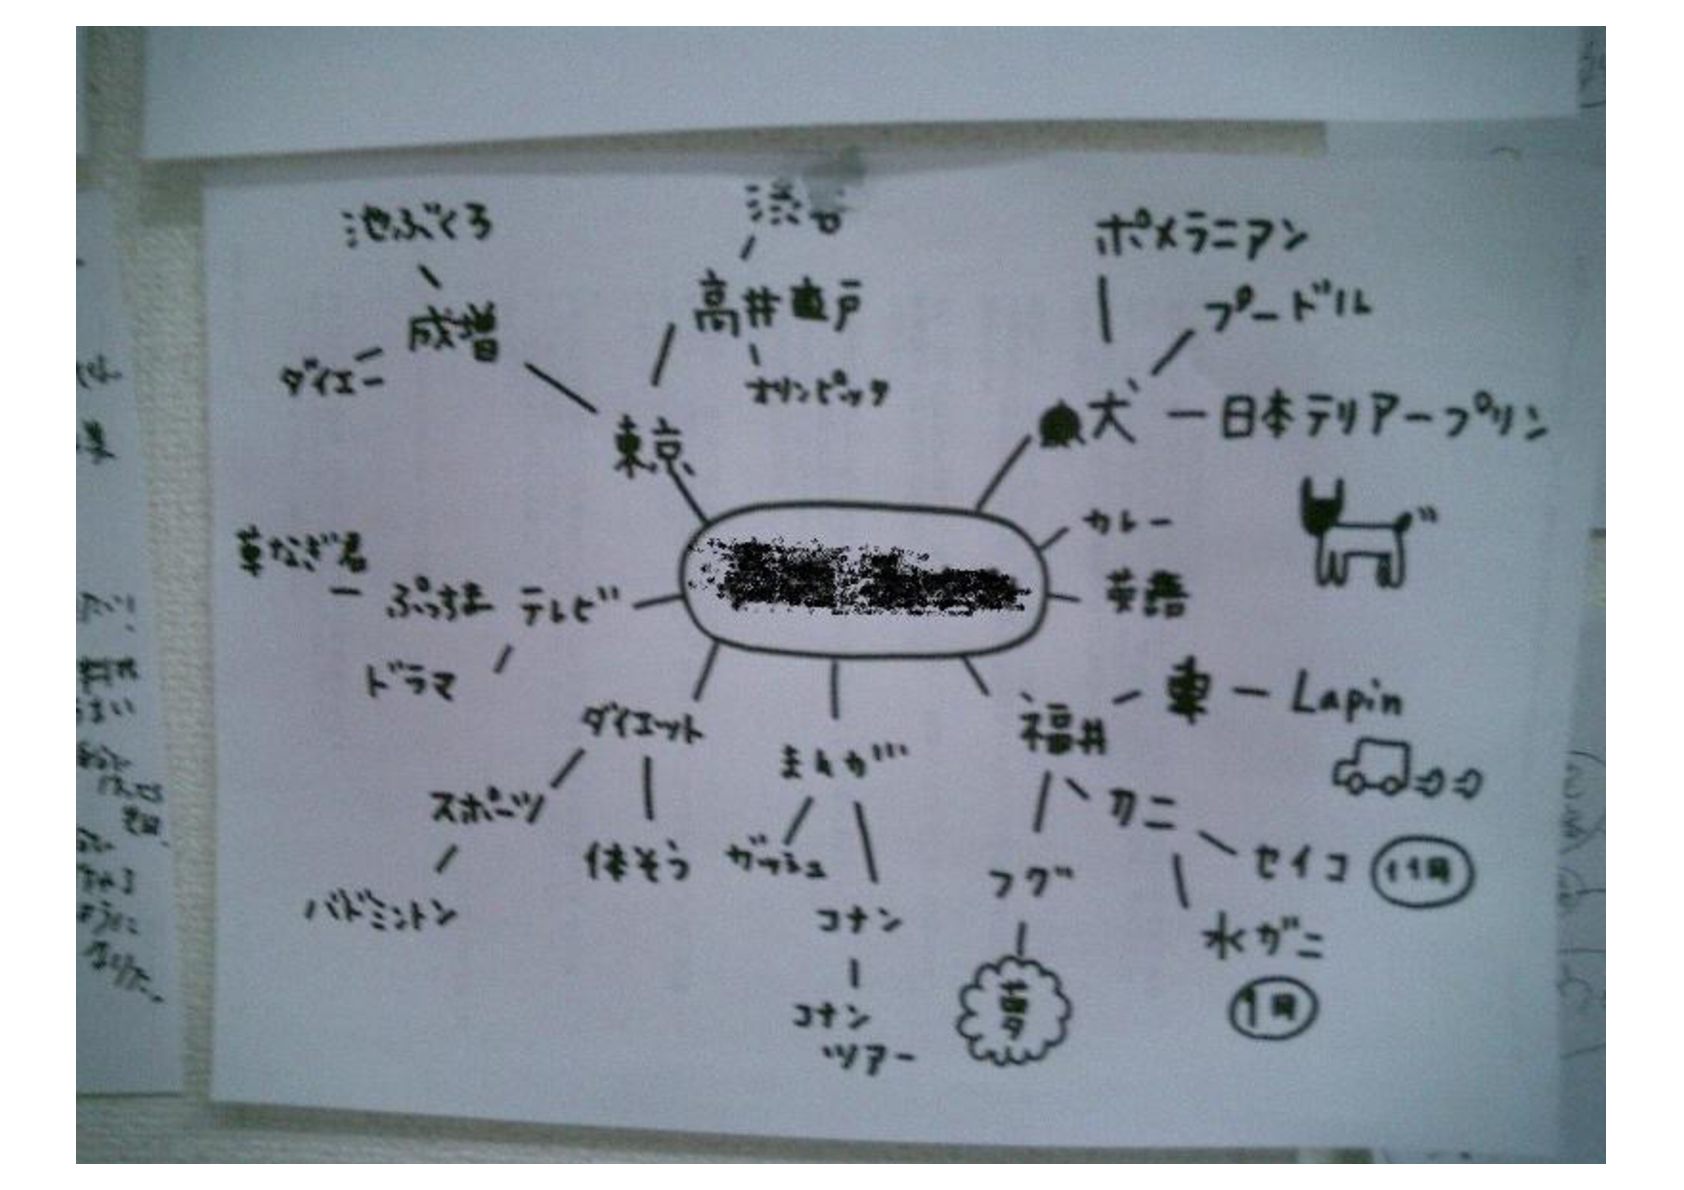 池ぶくろ
成増
ダイエー
渋谷
高井戸
オリンピック
東京
ポメラニアン
プードル
犬
日本テリアープリン
カレー
英語
草なぎ君
ぷっすま
テレビ
ドラマ
ダイエット
スポーツ
バドミントン
体そう
まんが
ガッシュ
コナン
コナン
ツアー
福井
車
Lapin
カニ
セイコ
水ガニ
フグ
夢